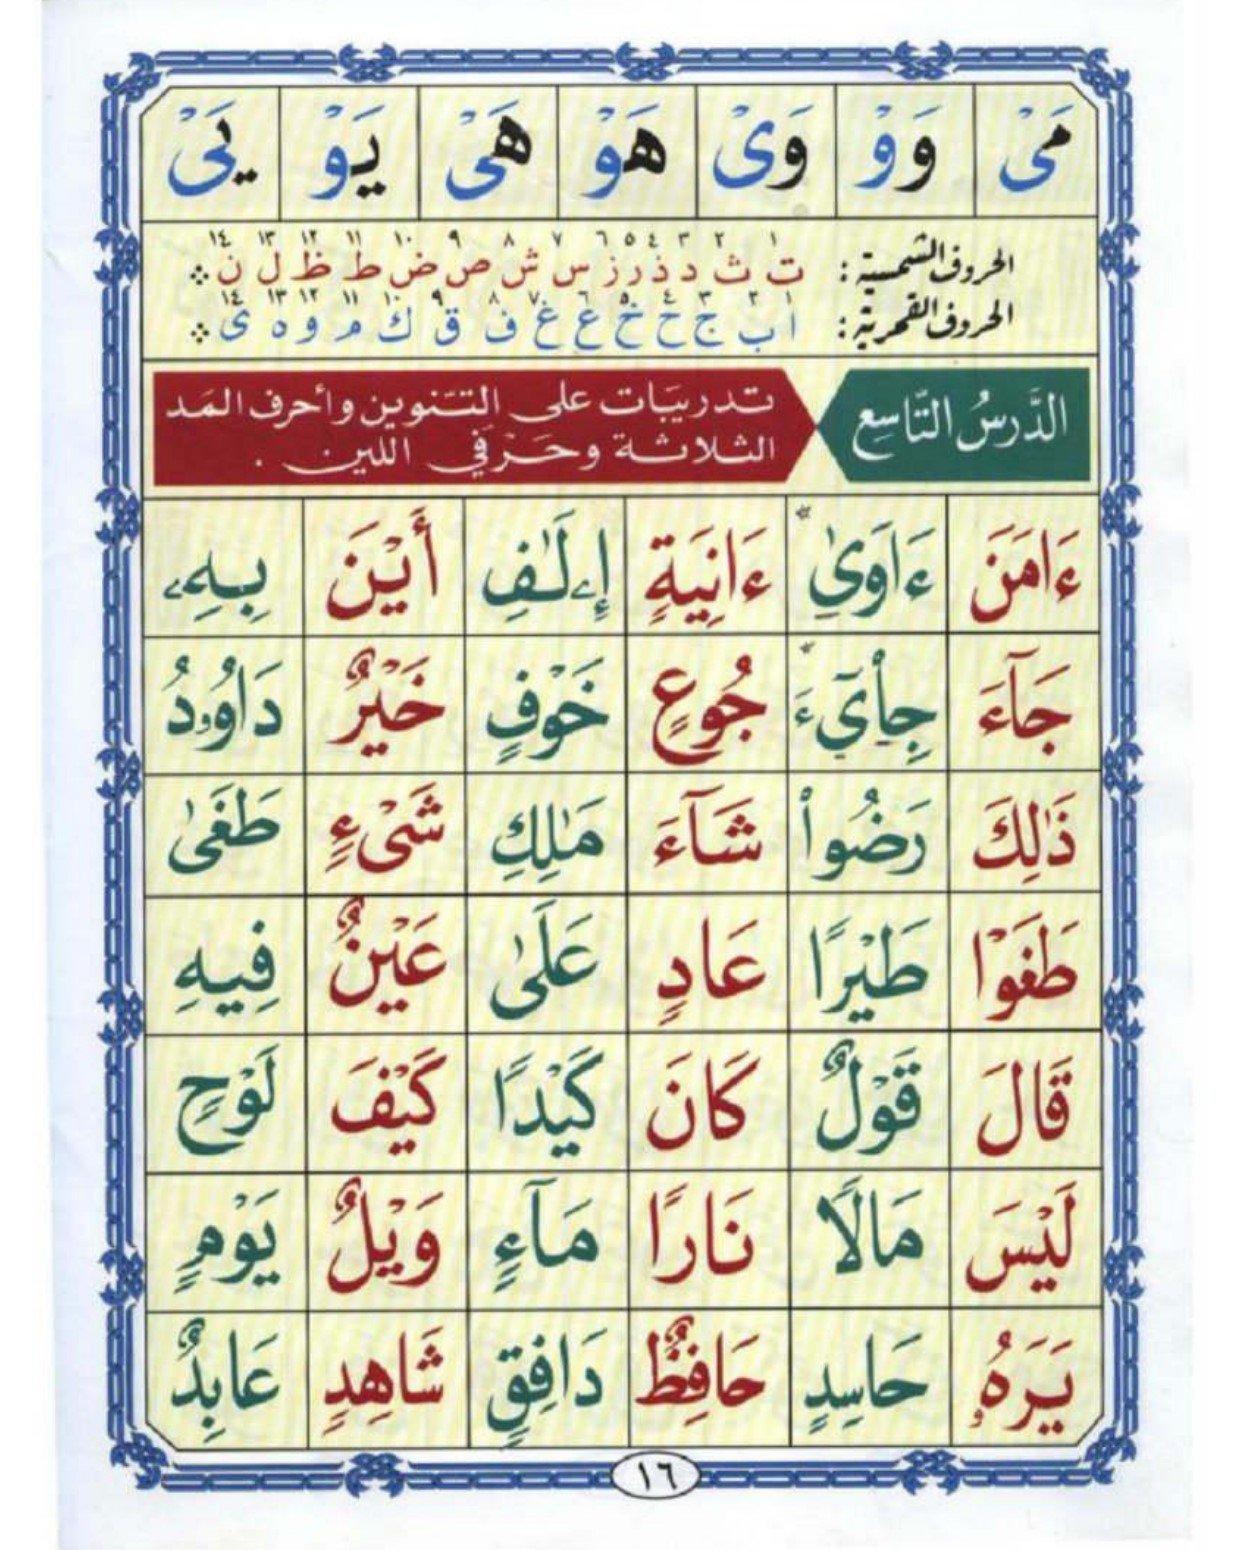 مَىْ وَوْ وَىْ هَوْ هَىْ يَوْ يَىْ
١ ٢ ٣ ٤ ٥ ٦ ٧ ٨ ٩ ١٠ ١١ ١٢ ١٣ ١٤
الحروف الشمسية : ت ث د ذ ر ز س ش ص ض ط ظ ل ن
١ ٢ ٣ ٤ ٥ ٦ ٧ ٨ ٩ ١٠ ١١ ١٢ ١٣ ١٤
الحروف القمرية : ا ب ج ح خ ع غ ف ق ك م و ه ى
الدَّرسُ التَّاسِع
تـدريبَات على التـنوين وأحرف المَد
الثلاثة وحَرْفَي اللين .
ءَامَنَ ءَاوَىٰ ءَانِيَةٍ إِۦلَٰفِ أَيْنَ بِهِۦ
جَآءَ جِاْىٓءَ جُوعٍ خَوْفٍ خَيْرٌ دَاوُۥدُ
ذَٰلِكَ رَضُواْ شَآءَ مَٰلِكِ شَىْءٍ طَغَىٰ
طَغَوْا طَيْرًا عَادٍ عَلَىٰ عَيْنٌ فِيهِ
قَالَ قَوْلٌ كَانَ كَيْدًا كَيْفَ لَوْحٍ
لَيْسَ مَالًا نَارًا مَآءٍ وَيْلٌ يَوْمٍ
يَرَهُۥ حَاسِدٍ حَافِظٌ دَافِقٍ شَاهِدٍ عَابِدٌ
١٦